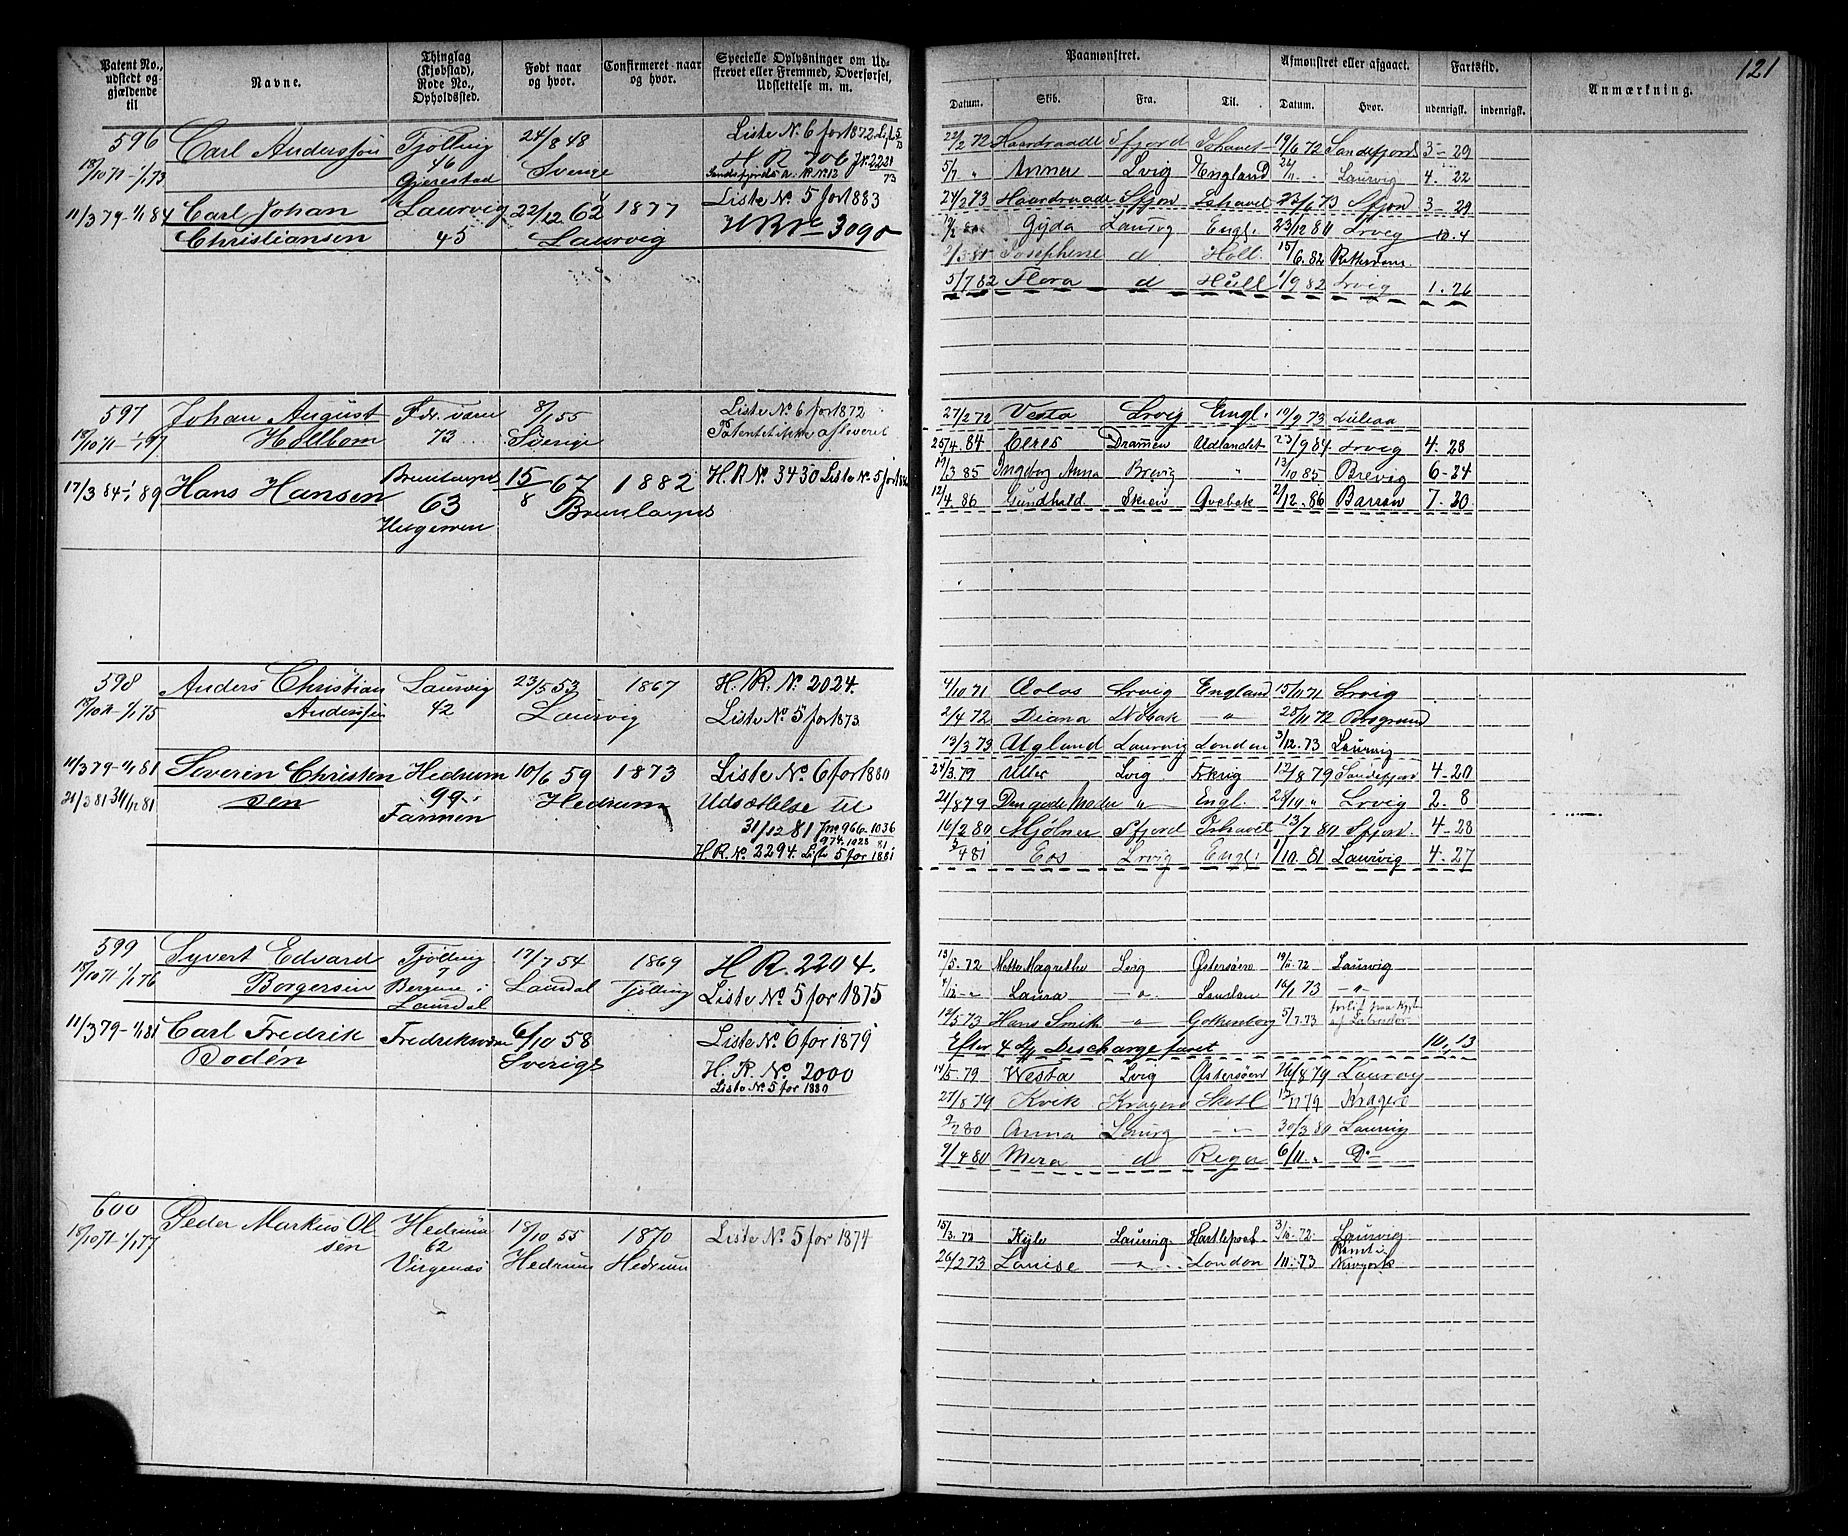 121
Patent No., udstedt og gjældende til
Navne.
Thinglag (Kjøbstad), Rode No., Opholdssted.
Født naar og hvor.
Confirmeret naar og hvor.
Specielle Oplysninger om Udstrevet eller Fremmed, Overførsel, Udslettelse m. m.
Paamønstret.
Afmønstret eller afgaaet.
Fartstid.
Anmærkning.
Datum. Skib. Fra. Til. Datum. Hvor. udenrigsk. indenrigsk.
596 Carl Anderssøn Tjølling 24/8 48 Liste No 6 for 1872
18/10 71 - 1/1 73 46 Sverige H. R. 706
Gjerestad
11/3 79 - 1/1 84 Carl Johan Laurvig 22/12 62 1877 Liste No 5 for 1883
Christiansen 45 Laurvig 3090
22/2 72 Haardraade Sfjord Ishavet 19/6 72 Sandefjord 3-29
5/7 " Anna Lvig England Laurvig 4-22
24/2 73 Haardraade Sfjord Ishavet 23/6 73 Sfjord 3-29
Gyda Laurvg Engl. 23/12 80 Lrvig
Josephine d Holl. 15/6.82
5/7 82 Flora d Hull 1/9 82 Lrvig 1-26
597 Johan August Fdr. værn 8/1 55 Liste No 6 for 1872
18/10 71 - 1/1 77 Holtbom 73 Sverige Patentet ikke afleveret
17/3 84 - 1/1 89 Hans Hansen 15/8 67 1882 H. R. No. 3430 Liste No 5 for
63
27/2 72 Vesta Lrvig Engl. 19/9 73
25/4.84 Ceres Drammen Udlandet 23/9 84 Lrvig 4-28
19/3 85 Ingeborg Anna Brevig " 13/10 85 Brevig 6-24
12/4.86 Gundhild Skien 2/12.86 7-20
598 Anders Christian Laurvig 23/5 53 1867 H. R. No. 2024.
18/10 71 - 1/1 75 Anderssøn 42 Laurvig Liste No 5 for 1873
11/3 79 - 1/1 81 Severin Christen Hedrum 10/6 59 1873 Liste No 6 for 1880
21/3 81 31/12 81 sen 99 Hedrum Udsættelse til
Farmen 31/12 81
H. R. No. 2294. Liste 5 for 1881
4/10 71 Aolos Lrvig England 15/11 71 Lrvig
2/4 72 Diana 25/11 72
13/3 73 Ugland Laurvig London 3/12.73 Laurvig
24/3.79 Uller Lvig 12/8 79 Sandefjord 4-20
21/8 79 Den gode Moder " Engl. " Lrvig 2-8
16/2 80 Mjølner Sfjord Ishavet 13/7 80 Sfjord. 4-28
Eos Lrvig Engl. 1/10.81 Laurvig 4-27
599 Syvert Edvard Tjølling 17/7 54 1869 H R. 2204.
18/10 71 - 1/1 76 Borgersen 7 Laurdal Tjølling Liste No 5 for 1875
Bergene i
Laurdal
11/3 79 - 1/1 81 Carl Fredrik Fredriksværn 6/10 58 Liste No 6 for 1879
Bodén Sverige H. R. No. 2000
Liste No 5 for 1880
13/5.72 Mette Magrethe Lvig Østersøen 19/11.72 Laurvig
Laura " London 16/1 73 "
Hans Smith " Gothenborg 5/7.73
Efter Discharge faret 10,13
14/5 79 Westa Lvig Østersøen 26/8 79 Laurvig
27/8 79 Kvik Kragerø Skotl 79 Kragerø
Anna Laurvg " 30/3 80 Laurvig
9/4 80 Mera d Riga 6/11 " Do
600 Peder Markus Ol Hedrum 18/10 55 1870 Liste No 5 for 1874
18/10 71 - 1/1 77 sen 62 Hedrum Hedrum
15/3.72 Laurvig Hartlepool 72. Laurvig
26/2 73 Louise " London 73